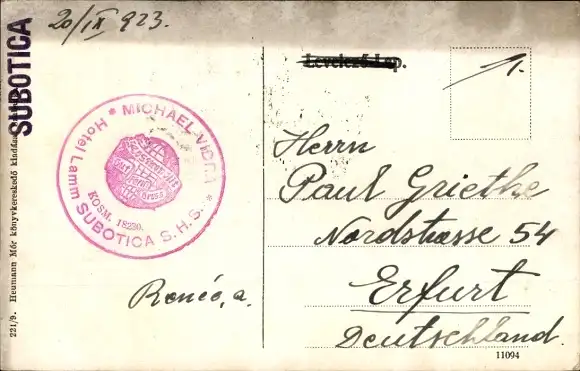 20/IX 923.
SUBOTICA
Levelező-Lap.
1.
MICHAEL
* Hotel Lamm SUBOTICA S.H.S. *
KOSM. 18230.
Herrn
Paul Griethe
Nordstrasse 54
Erfurt
Deutschland.
221/9. Heumann Mór könyvkereskedő kiadása
11094